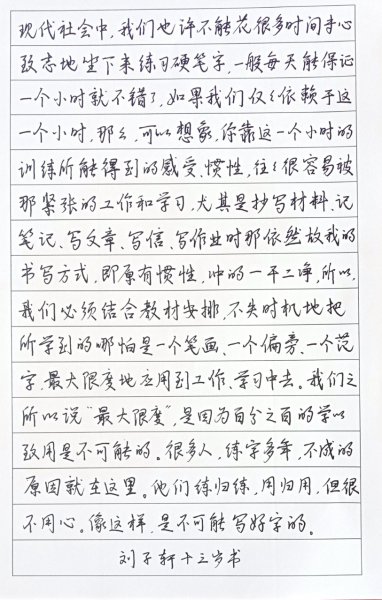 现代社会中,我们也许不能花很多时间专心
致志地坐下来练习硬笔字,一般每天能保证
一个小时就不错了,如果我们仅仅依赖于这
一个小时,那么,可以想象,你靠这一个小时的
训练所能得到的感受、惯性,往往很容易被
那紧张的工作和学习,尤其是抄写材料、记
笔记、写文章、写信、写作业时那依然故我的
书写方式,即原有惯性,冲的一干二净,所以,
我们必须结合教材安排,不失时机地把
所学到的哪怕是一个笔画、一个偏旁、一个范
字,最大限度地应用到工作、学习中去。我们之
所以说“最大限度”,是因为百分之百的学以
致用是不可能的。很多人,练字多年,不成的
原因就在这里。他们练归练,用归用,但很
不用心。像这样,是不可能写好字的。
刘子轩十三岁书